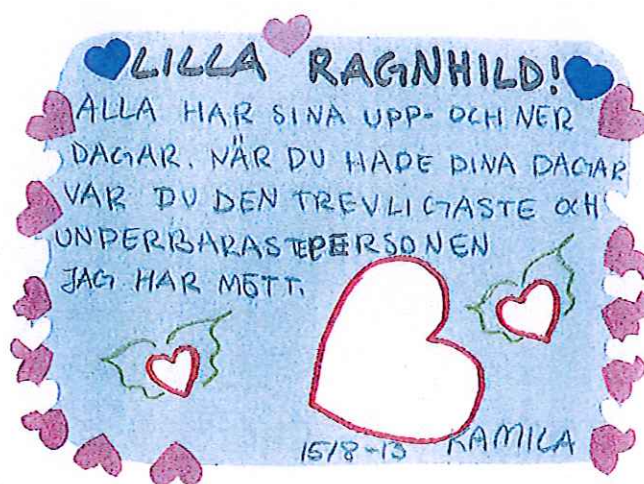 LILLA RAGNHILD!
ALLA HAR SINA UPP- OCH NER
DAGAR. NÄR DU HADE DINA DAGAR
VAR DU DEN TREVLIGASTE OCH
UNDERBARASTEPERSONEN
JAG HAR MÖTT.
15/8-13 KAMILA